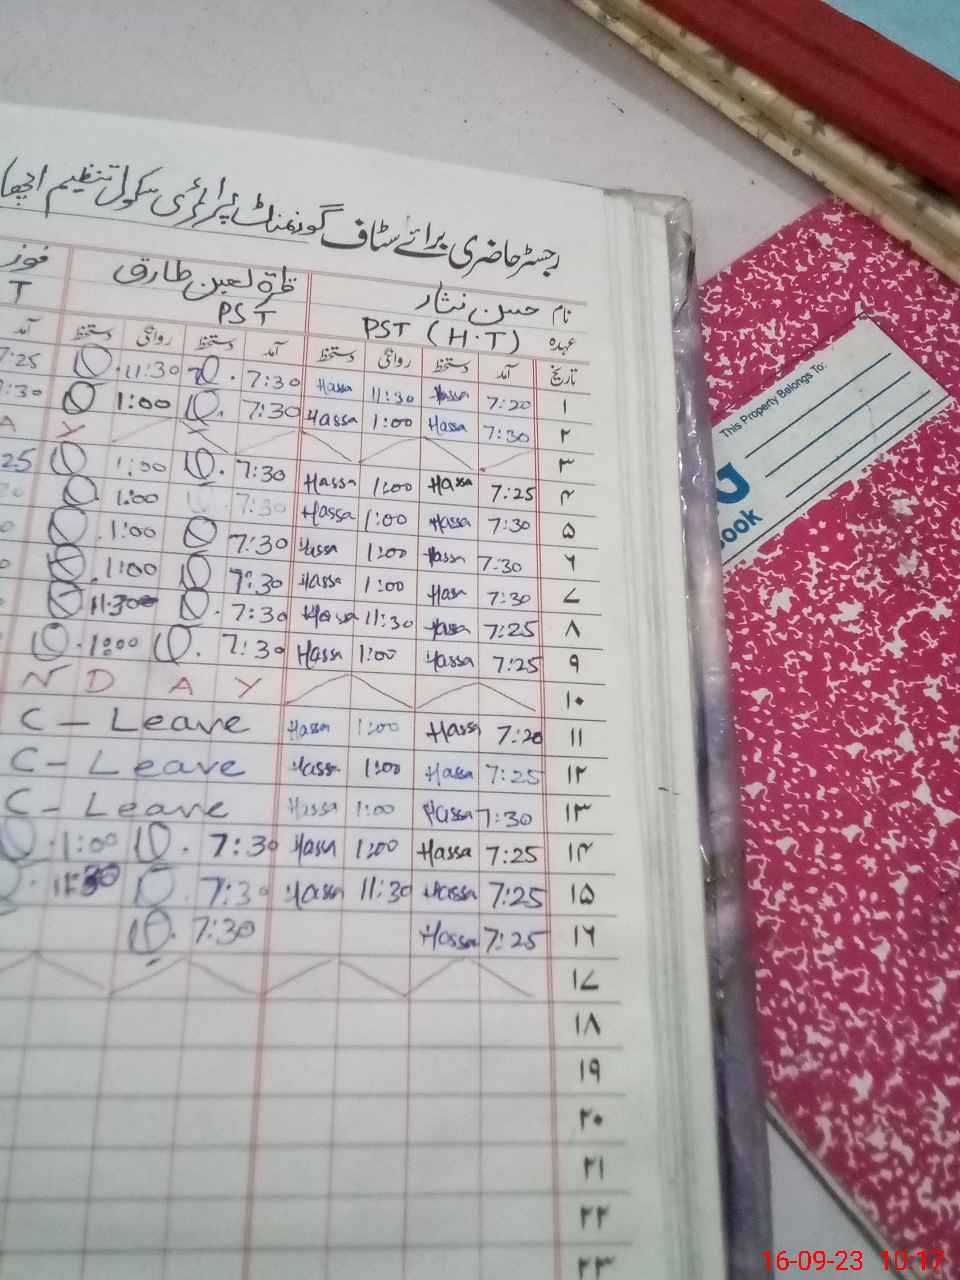 رجسٹر حاضری برائے سٹاف گورنمنٹ پرائمری سکول تنظیم اچھا
نام حسن نثار قرۃ لعین طارق فوز
عہدہ PST (H.T) PST T
تاریخ آمد دستخط روانگی دستخط آمد دستخط روانگی دستخط آمد
۱ 7:20 Hassa 11:30 Hassa 7:30 11:30 7:25
۲ 7:30 Hassa 1:00 Hassa 7:30 1:00 7:30
۳ Y A
۴ 7:25 Hassa 1:00 Hassa 7:30 1:00 25
۵ 7:30 Hassa 1:00 Hassa 7:30 1:00
۶ 7:30 Hassa 1:00 Hassa 7:30 1:00
۷ 7:30 Hasn 1:00 Hassa 7:30 1:00
۸ 7:25 Hassa 11:30 Hassa 7:30 11:30
۹ 7:25 Hassa 1:00 Hassa 7:30 1:00
۱۰ N D A Y
۱۱ 7:20 Hassa 1:00 Hassa C - Leave
۱۲ 7:25 Hassa 1:00 Hassa C - Leave
۱۳ 7:30 Hassa 1:00 Hassa C - Leave
۱۴ 7:25 Hassa 1:00 Hassa 7:30 1:00
۱۵ 7:25 Hassa 11:30 Hassa 7:30
۱۶ 7:25 Hassa 7:30
۱۷
۱۸
۱۹
۲۰
۲۱
۲۲
۲۳
This Property Belongs To:
ook
16-09-23 10:17